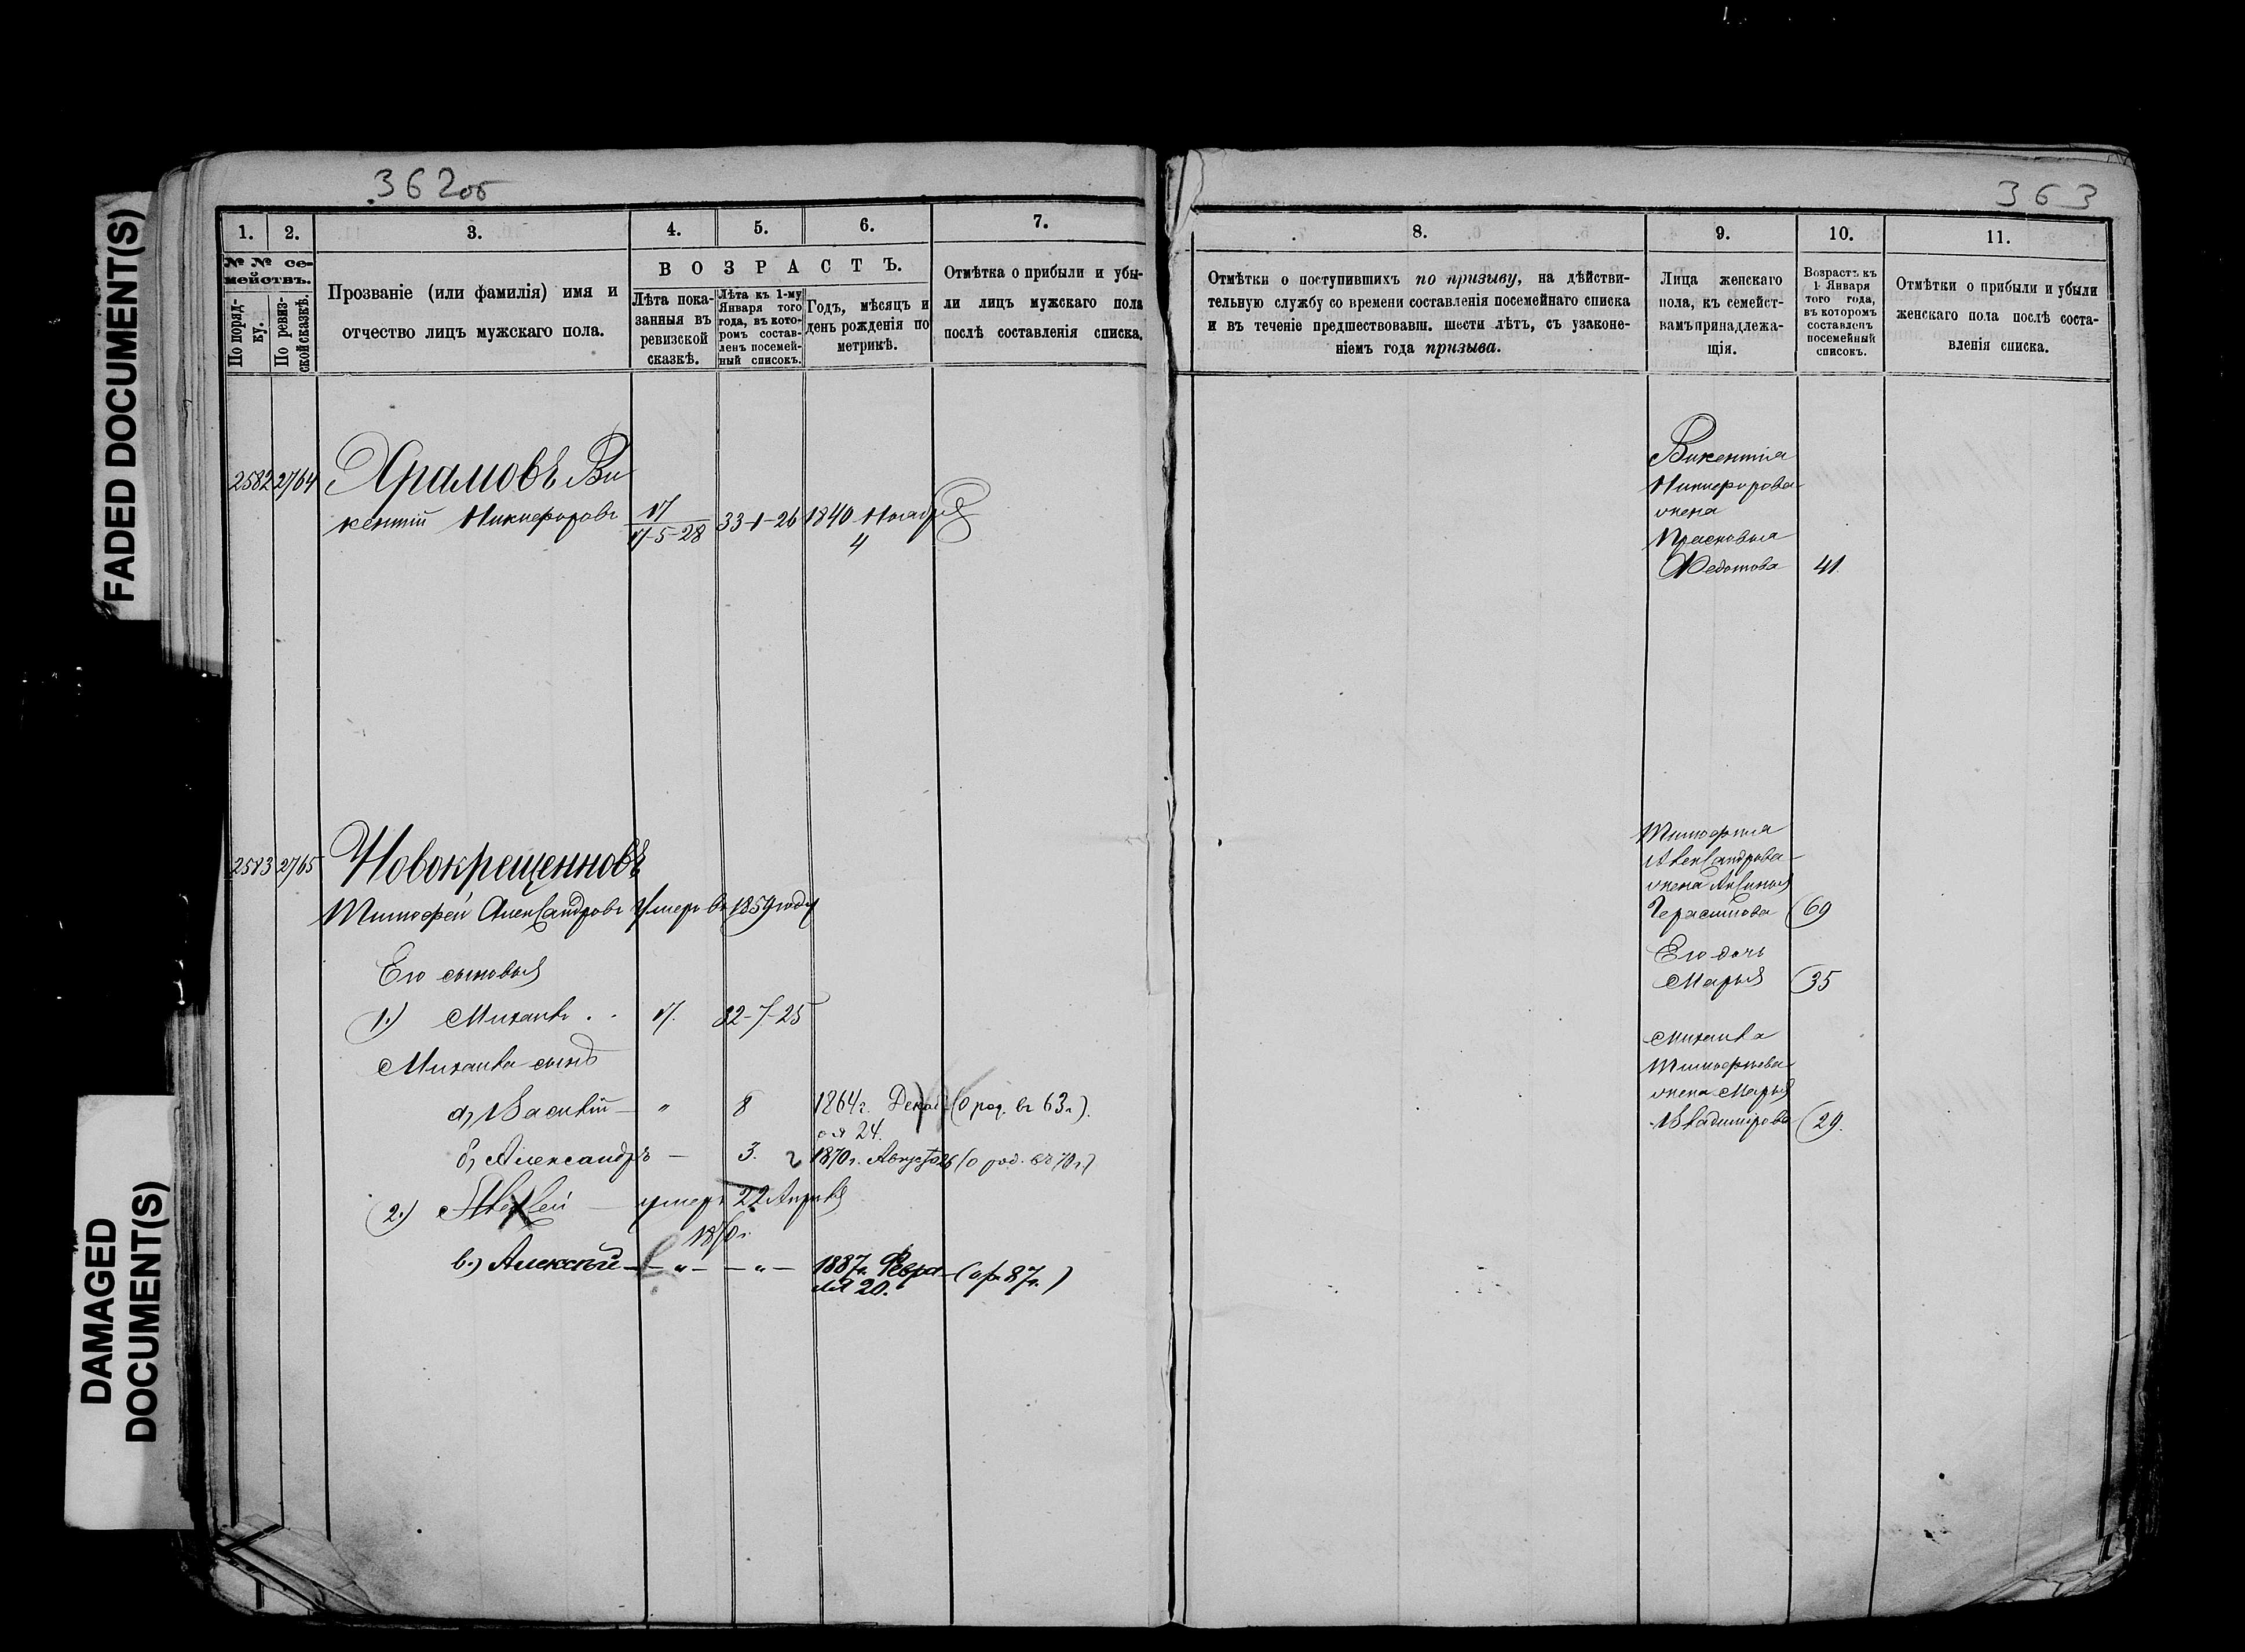 FADED DOCUMENT(S)
DAMAGED
DOCUMENT(S)
362об
1. 2. 3. 4. 5. 6. 7.
№ № се-
мействъ.
По поряд-
ку.
По ревиз-
ской сказкѣ.
Прозваніе (или фамилія) имя и
отчество лицъ мужскаго пола.
ВОЗРАСТЪ.
Лѣта пока-
занныя въ
ревизской
сказкѣ.
Лѣта къ 1-му
Января того
года, въ кото-
ромъ состав-
ленъ посемей-
ный списокъ.
Годъ, мѣсяцъ и
день рожденія по
метрикѣ.
Отмѣтка о прибыли и убы-
ли лицъ мужскаго пола
послѣ составленія списка.
2582 2764 Храмовъ Ви
кентій Никифоровъ 17 33-1-26 1840 Ноября
17-5-28 4
2583 2765 Новокрещенновъ
Тимофей Александровъ Умеръ въ 1859 году
Его сыновья
1.) Михаилъ . . 17. 32-7-25
Михаила сынъ
а, Василій — " 8 1864г. Декаб (о рад. въ 63г).
ря 24.
б, Александръ — 3. 1870г. Августа 26 (о рад. въ 70г.)
2.) Алексей — умеръ 22 Апрѣля
18
в.) Алексѣй — " — — " — 1887г. Февра- (о р. 87г.)
ля 20.
363
8. 9. 10. 11.
Отмѣтки о поступившихъ по призыву, на дѣйстви-
тельную службу со времени составленія посемейнаго списка
и въ теченіе предшествовавш. шести лѣтъ, съ узаконе-
ніемъ года призыва.
Лица женскаго
пола, къ семейст-
вамъ принадлежа-
щія.
Возрастъ къ
1 Января
того года,
въ которомъ
составленъ
посемейный
списокъ.
Отмѣтки о прибыли и убыли
женскаго пола послѣ соста-
вленія списка.
Викентія
Никифорова
жена
Прасковья
Федотова 41.
Тимофея
Александрова
жена Аксинья
Герасимова 69
Его дочь
Марья 35
Михаила
Тимофеева
жена Марья
Владимірова 29.